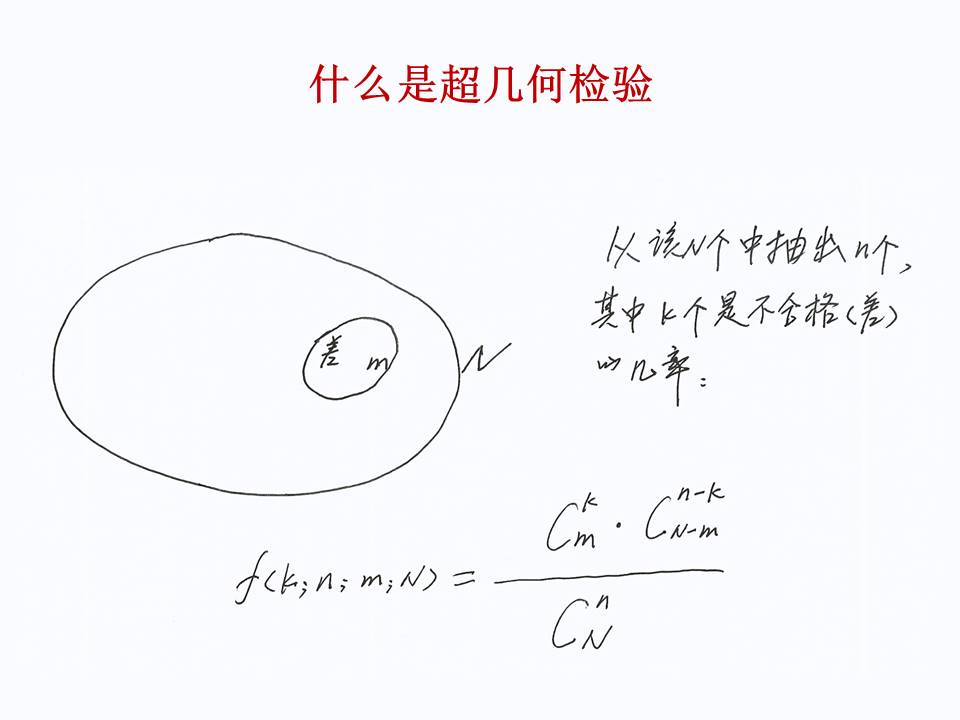 什么是超几何检验
从该N个中抽出n个,
其中k个是不合格(差)
的几率:
差 m
N
f(k;n;m;N) = C_m^k · C_{N-m}^{n-k} / C_N^n